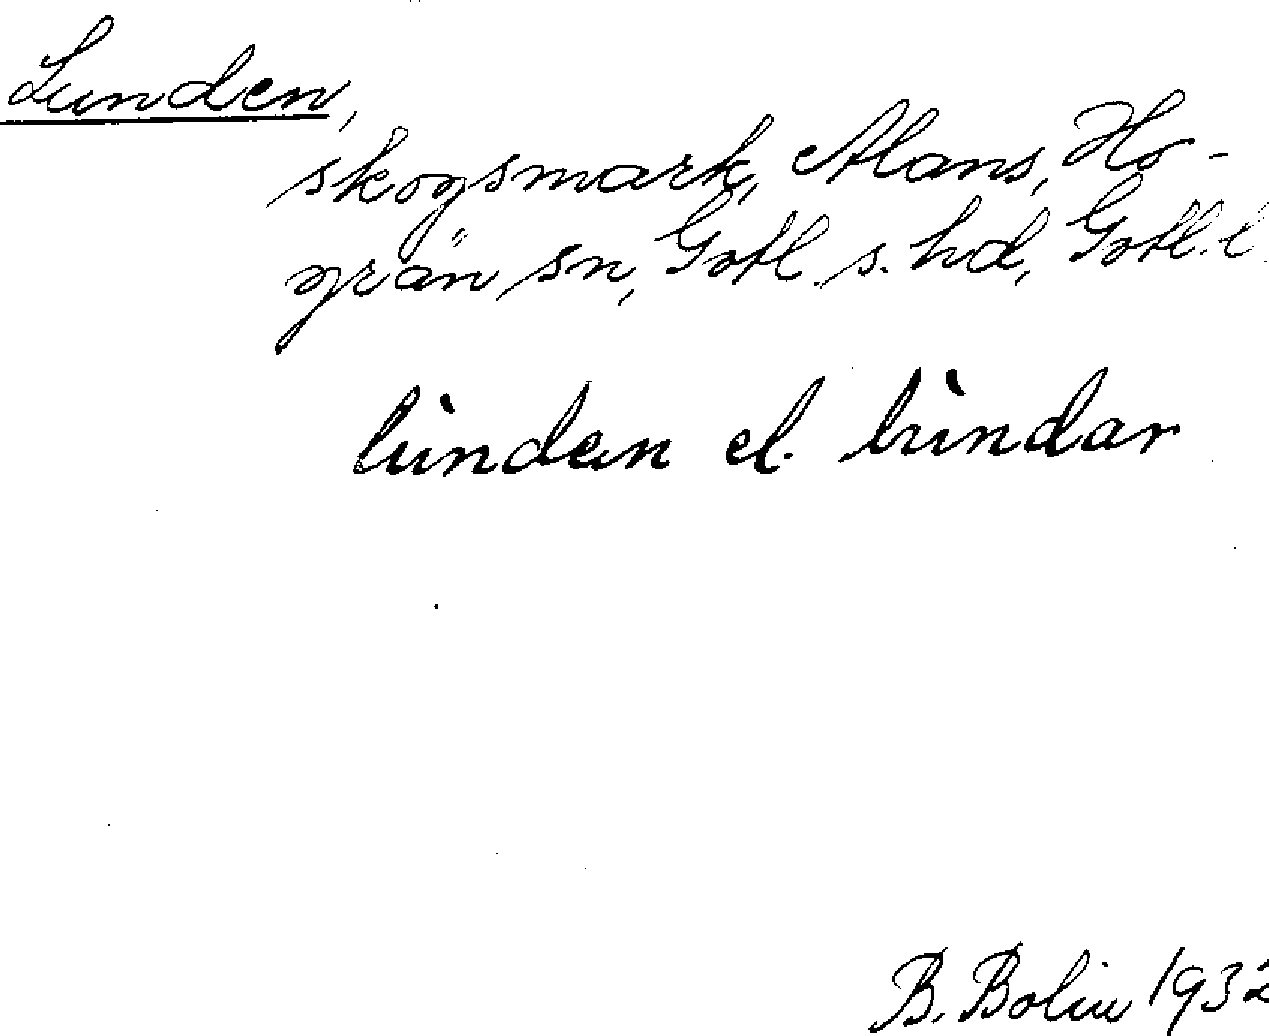 Lunden,
skogsmark, Alans, Ho-
grän sn, Gotl. s. hd, Gotl. l.
lùnden el. lùndar
B. Bolin 1932